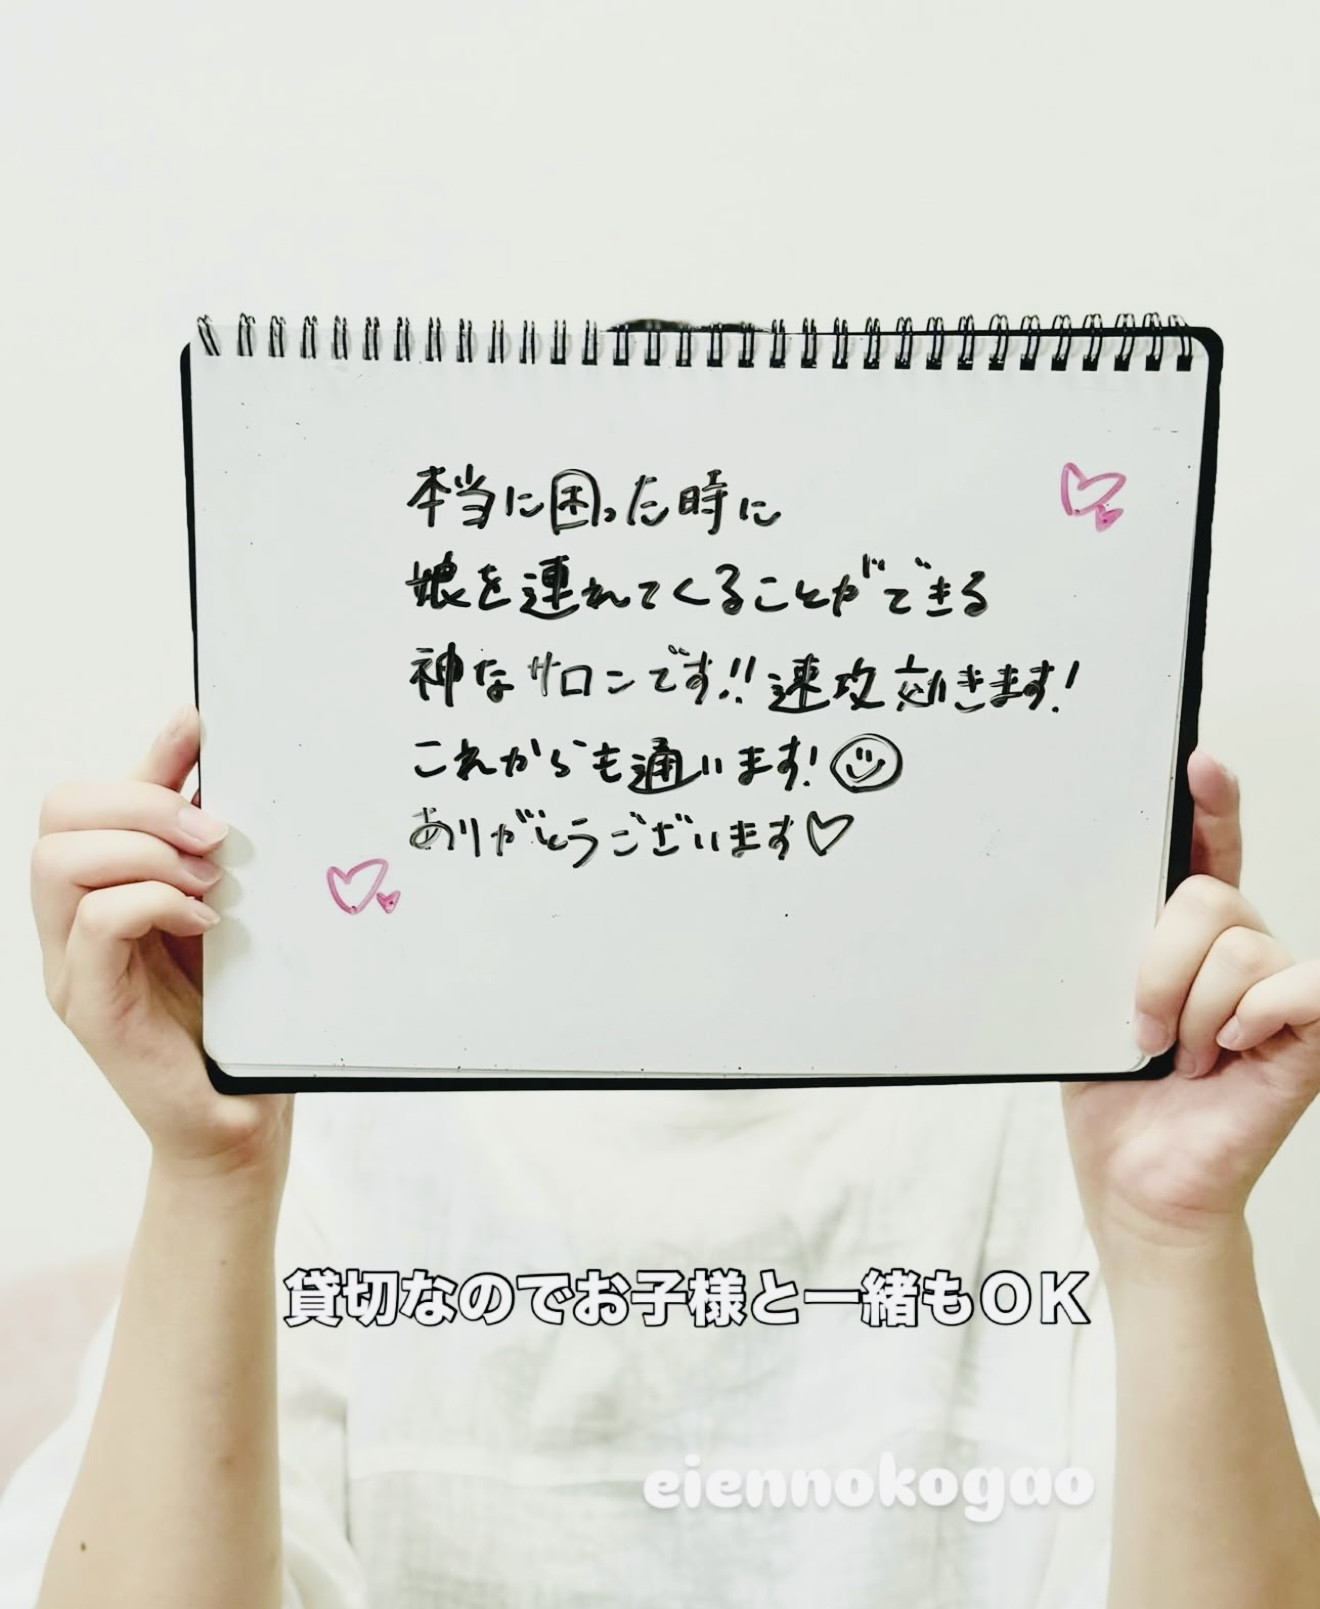 本当に困った時に
娘を連れてくることができる
神なサロンです!!速攻効きます!
これからも通います!
ありがとうございます♡
貸切なのでお子様と一緒もOK
eiennokogao